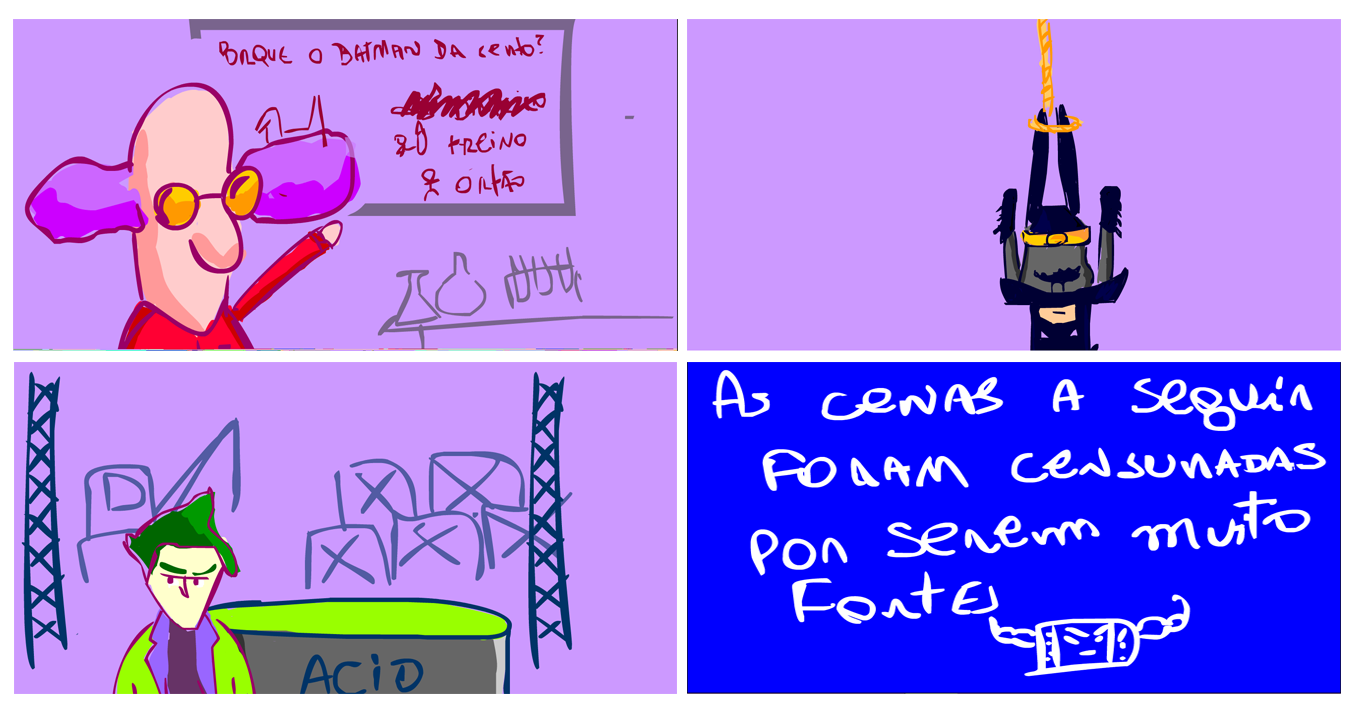 PORQUE O BATMAN DA CERTO?
TREINO
ORFÃO
D
ACID
As CENAS A SEGUIR
FORAM CENSURADAS
POR SEREM MUITO
FORTES